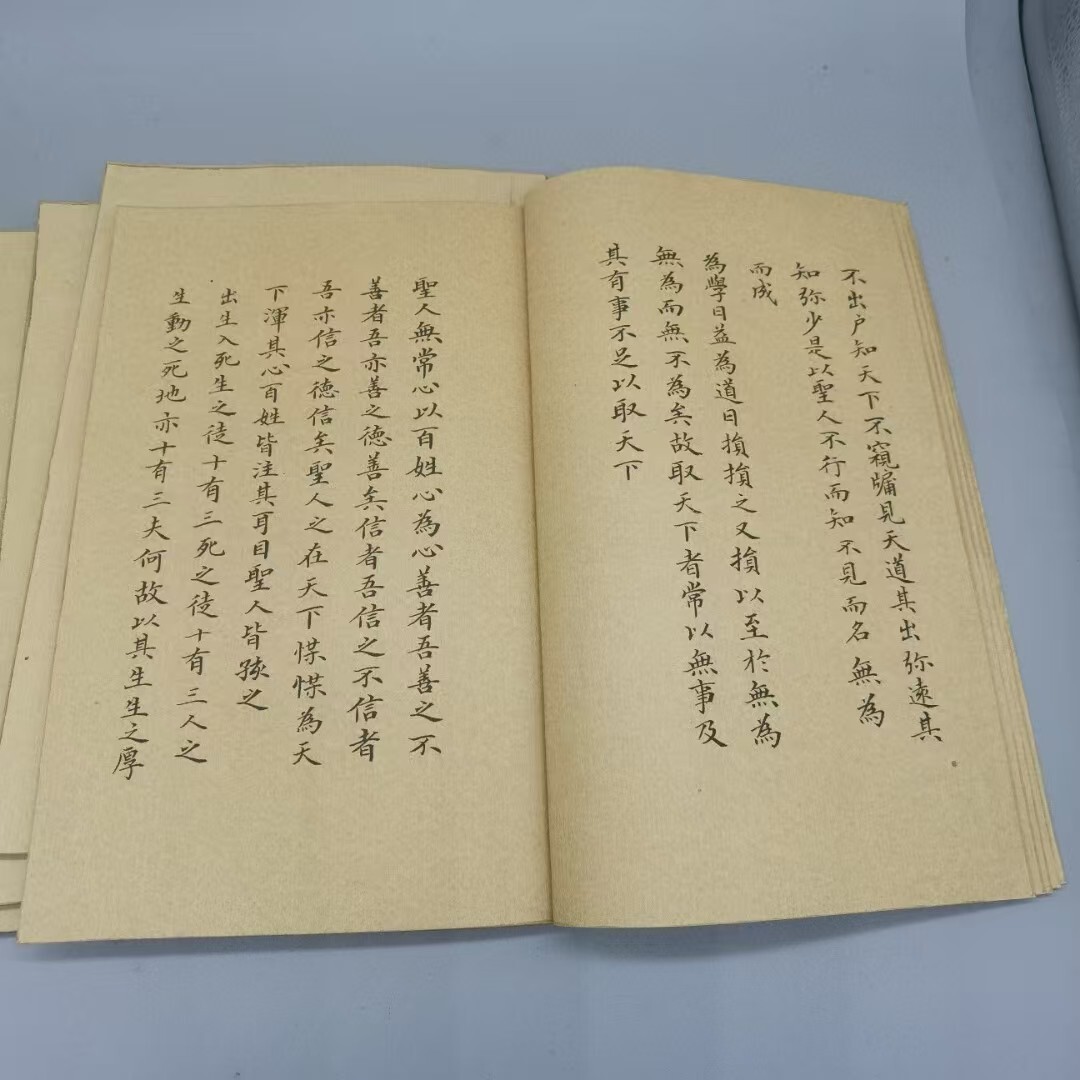 不出户知天下不窺牖見天道其出弥遠其
知弥少是以聖人不行而知不見而名無為
而成
為學日益為道日損損之又損以至於無為
無為而無不為矣故取天下者常以無事及
其有事不足以取天下
聖人無常心以百姓心為心善者吾善之不
善者吾亦善之德善矣信者吾信之不信者
吾亦信之德信矣聖人之在天下惵惵為天
下渾其心百姓皆注其耳目聖人皆孩之
出生入死生之徒十有三死之徒十有三人之
生動之死地亦十有三夫何故以其生生之厚